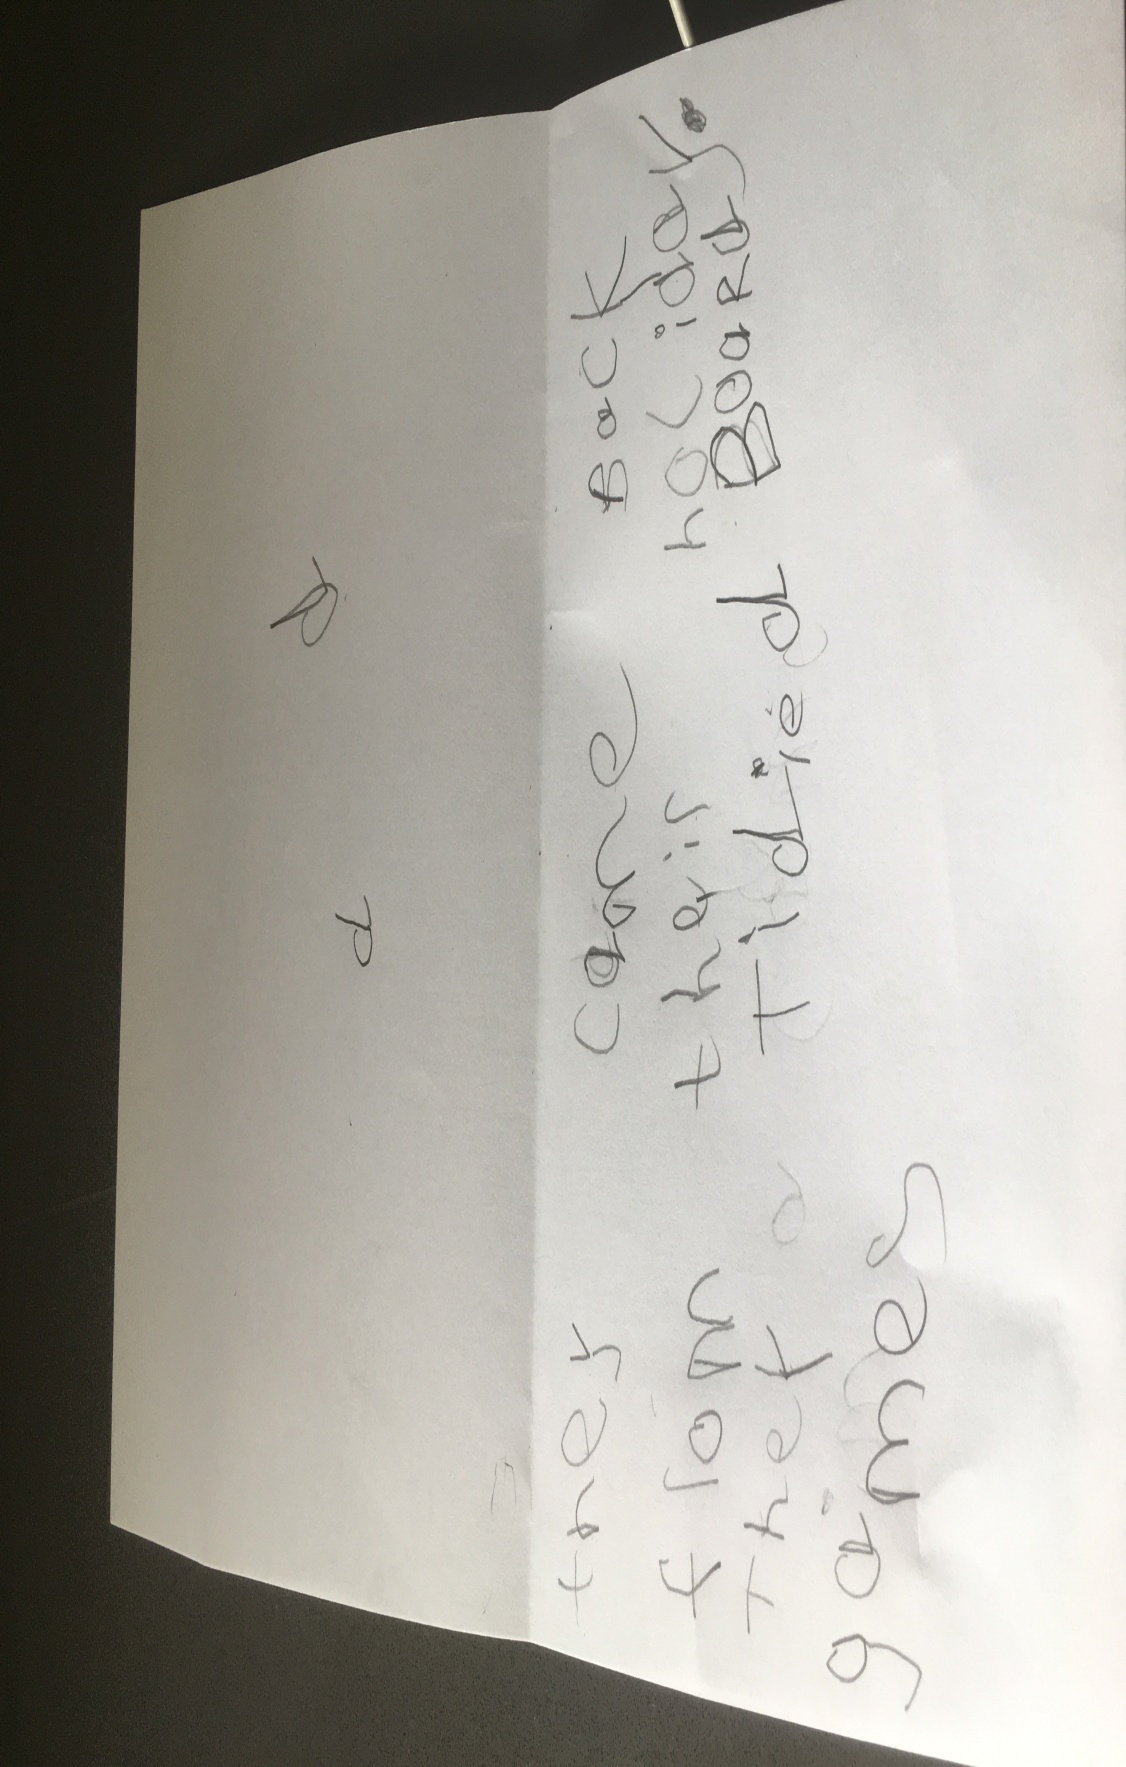 d d
they came Back
from their holiday.
They Tidied Board
games